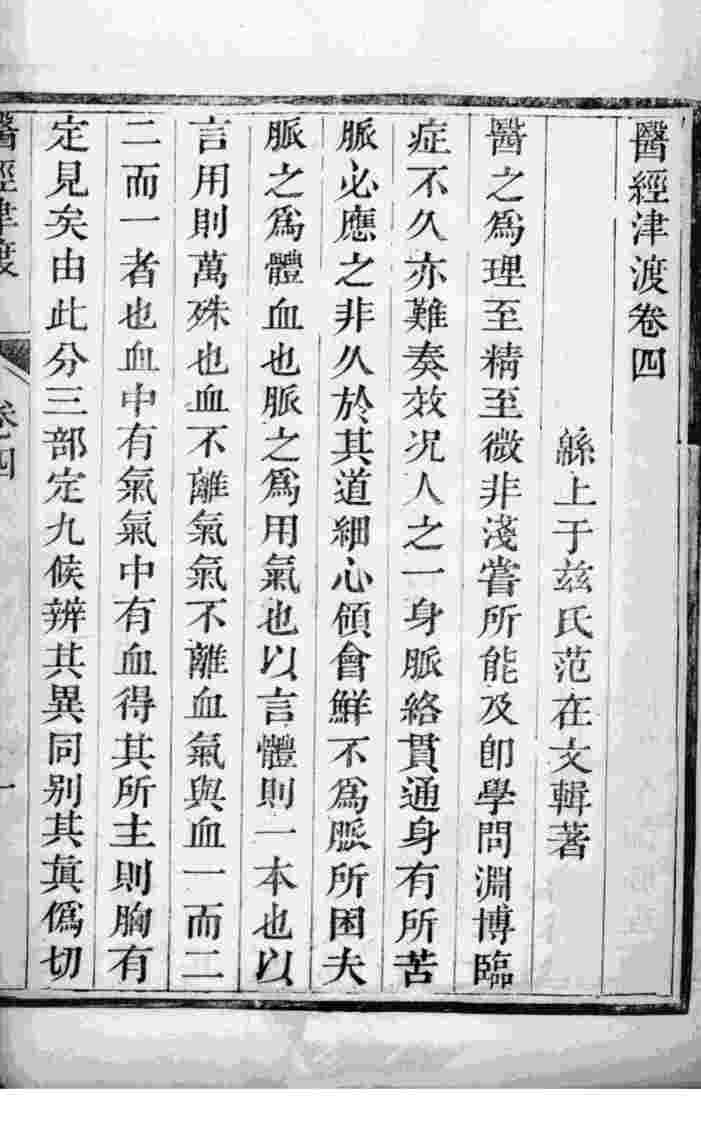 醫經津渡卷四
緜上于茲氏范在文輯著
醫之爲理至精至微非淺嘗所能及卽學問淵博臨
症不久亦難奏效况人之一身脈絡貫通身有所苦
脈必應之非久於其道細心領會鮮不爲脈所困夫
脈之爲體血也脈之爲用氣也以言體則一本也以
言用則萬殊也血不離氣氣不離血氣與血一而二
二而一者也血中有氣氣中有血得其所主則胸有
定見矣由此分三部定九候辨其異同别其眞僞切
醫經津渡
卷四
一